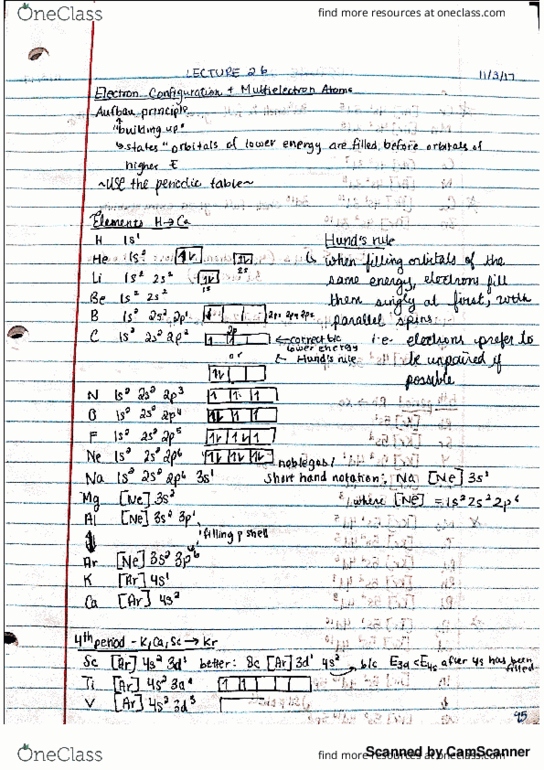 OneClass
find more resources at oneclass.com
LECTURE 26 11/3/17
Electron Configuration + Multielectron Atoms
Aufbau principle
"building up"
↳ states "orbitals of lower energy are filled before orbitals of
higher E
~USE the periodic table~
Elements H→Ca
H 1s¹
He 1s²
Li 1s² 2s¹
Be 1s² 2s²
B 1s² 2s² 2p¹
C 1s² 2s² 2p²
2p
← correct b/c
lower energy
or
← Hund's rule
Hund's rule
↳ when filling orbitals of the
same energy, electrons fill
them singly at first, with
parallel spins.
i.e. electrons prefer to
be unpaired if
possible
N 1s² 2s² 2p³
O 1s² 2s² 2p⁴
F 1s² 2s² 2p⁵
Ne 1s² 2s² 2p⁶ noble gas!
Na 1s² 2s² 2p⁶ 3s¹ short hand notation: Na [Ne] 3s¹
Mg [Ne] 3s² where [Ne] = 1s² 2s² 2p⁶
Al [Ne] 3s² 3p¹
filling p shell
Ar [Ne] 3s² 3p⁶
K [Ar] 4s¹
Ca [Ar] 4s²
4th period - K, Ca, Sc → Kr
Sc [Ar] 4s² 3d¹ better: Sc [Ar] 3d¹ 4s² b/c E3d < E4s after 4s has been
filled.
Ti [Ar] 4s² 3d²
V [Ar] 4s² 3d³
95
Scanned by CamScanner
OneClass
find more resources at oneclass.com